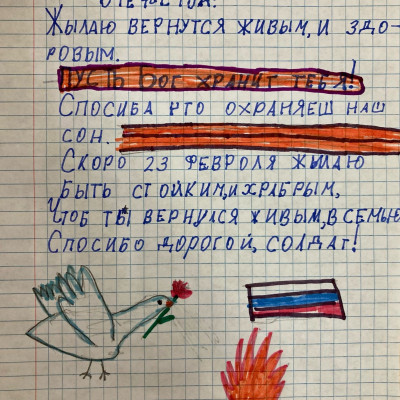 ЖЫЛАЮ ВЕРНУТСЯ ЖИВЫМ, И ЗДО-
РОВЫМ.
ПУСТЬ БОГ ХРАНИТ ТЕБЯ!
СПОСИБА ЧТО ОХРАНЯЕШ НАШ
СОН.
СКОРО 23 ФЕВРОЛЯ ЖЫЛАЮ
БЫТЬ СТОЙКИМ, И ХРАБРЫМ,
ЧТОБ ТЫ ВЕРНУЛСЯ ЖИВЫМ, В СЕМЬЮ
СПОСИБО ДОРОГОЙ, СОЛДАТ!